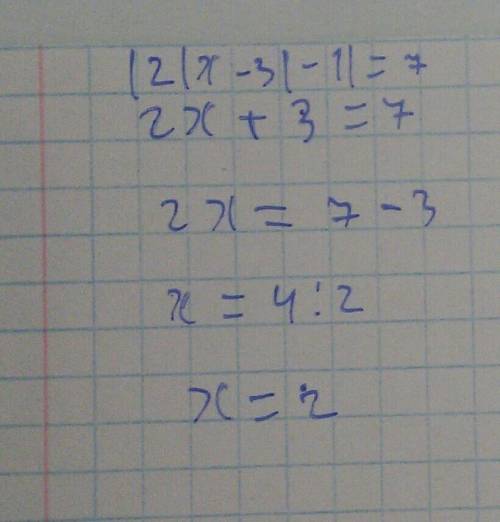 |2|x-3|-1|=7
2x+3=7
2x=7-3
x=4:2
x=2